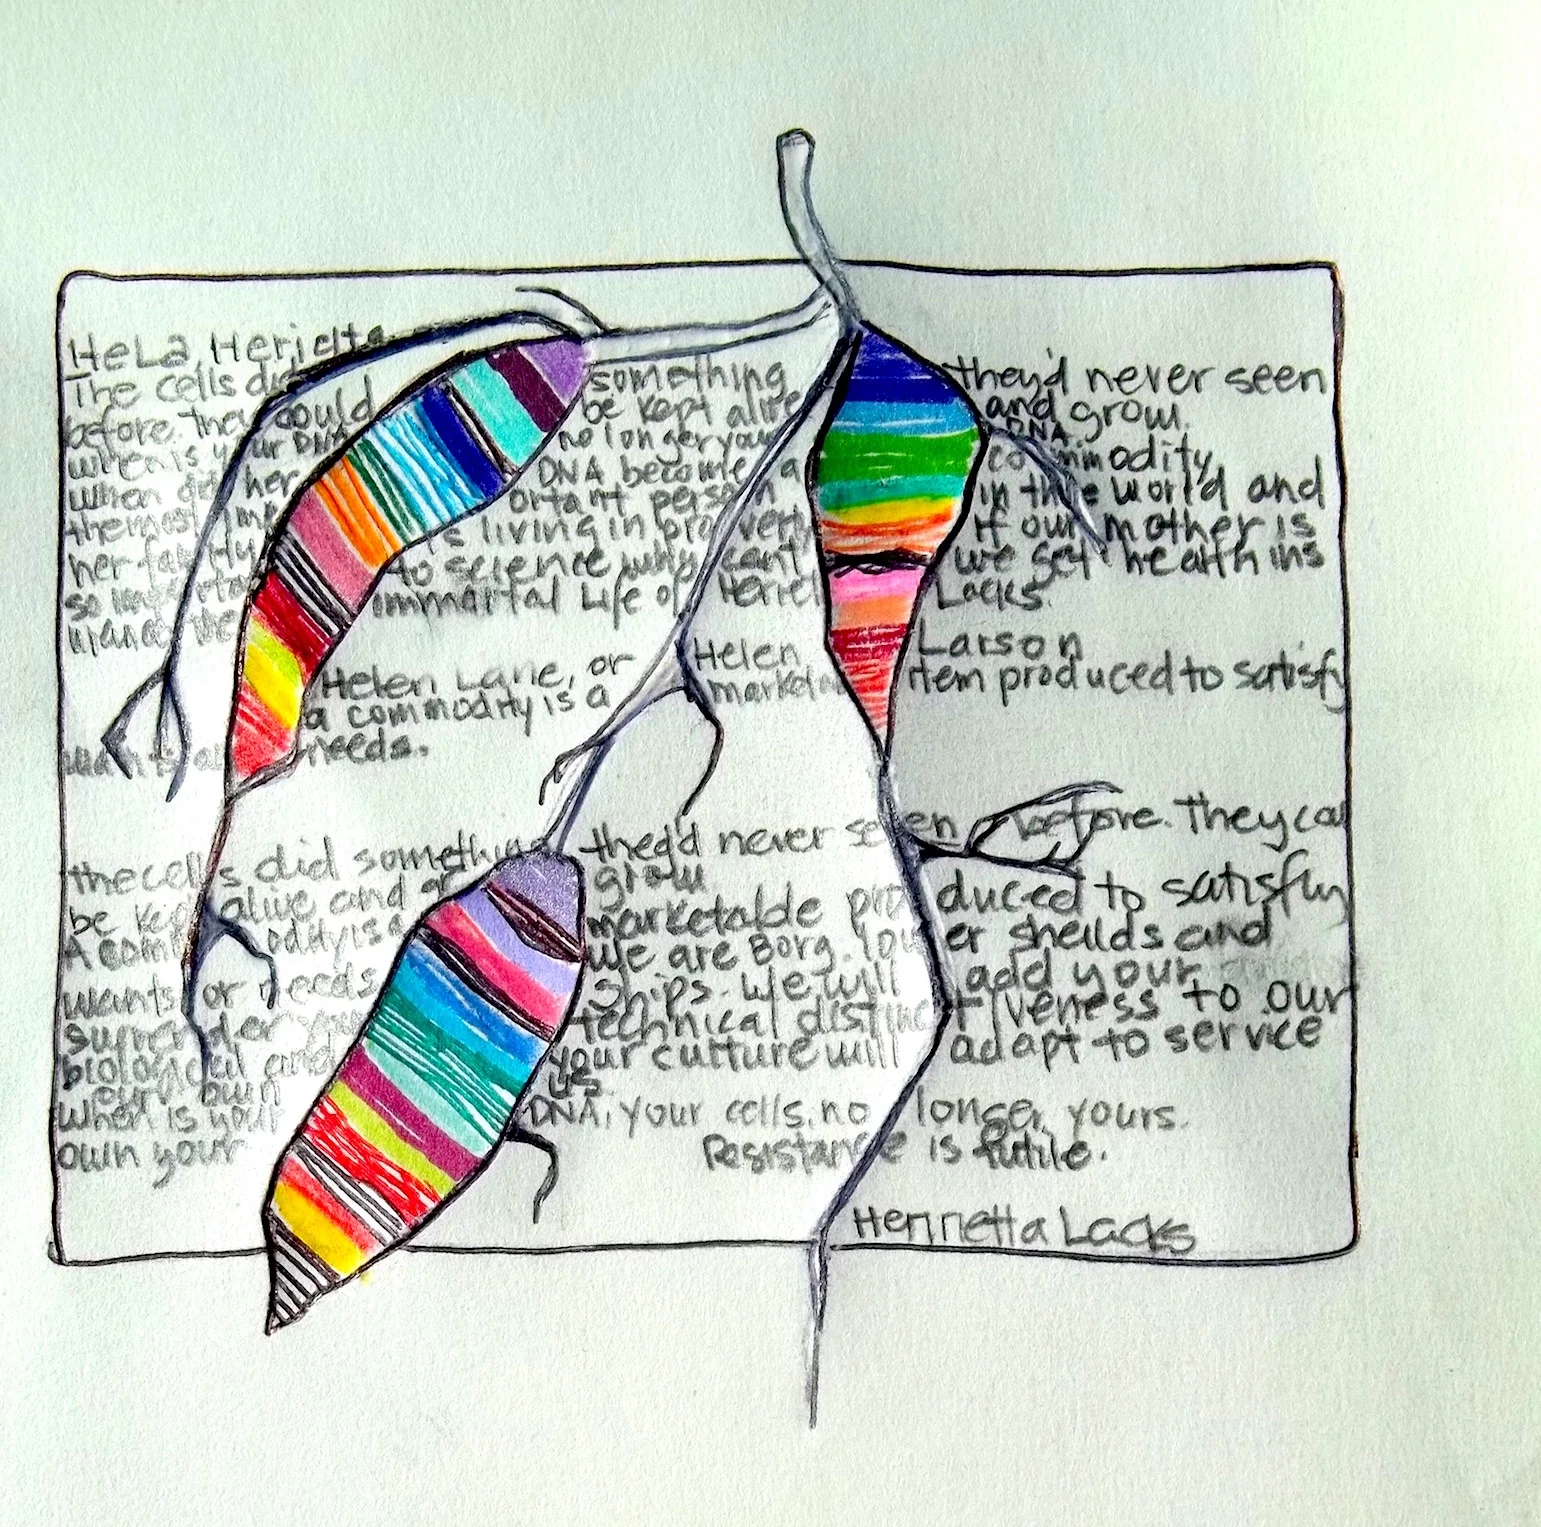 HeLa, Heriette
The cells did something they'd never seen
before. they could be kept alive and grow.
when is your DNA no longer your DNA.
when did her DNA become a commodity
the most important person in the world and
her family is living in proverty If our mother is
so to science why cant we get health ins
immartal Life of Lacks.
Helen Lane, or Helen Larson
a commodity is a item produced to satisfy
needs.
the cells did something they'd never seen before. They can
be kept alive and grow
A commodity is a marketable produced to satisfy
wants or needs We are Borg. Lower sheilds and
surrender ships. We will add your
biological and technical distinctiveness to our
own your culture will adapt to service
us.
When is your DNA, your cells, no longer yours.
own your Resistance is futile.
Henrietta Lacks